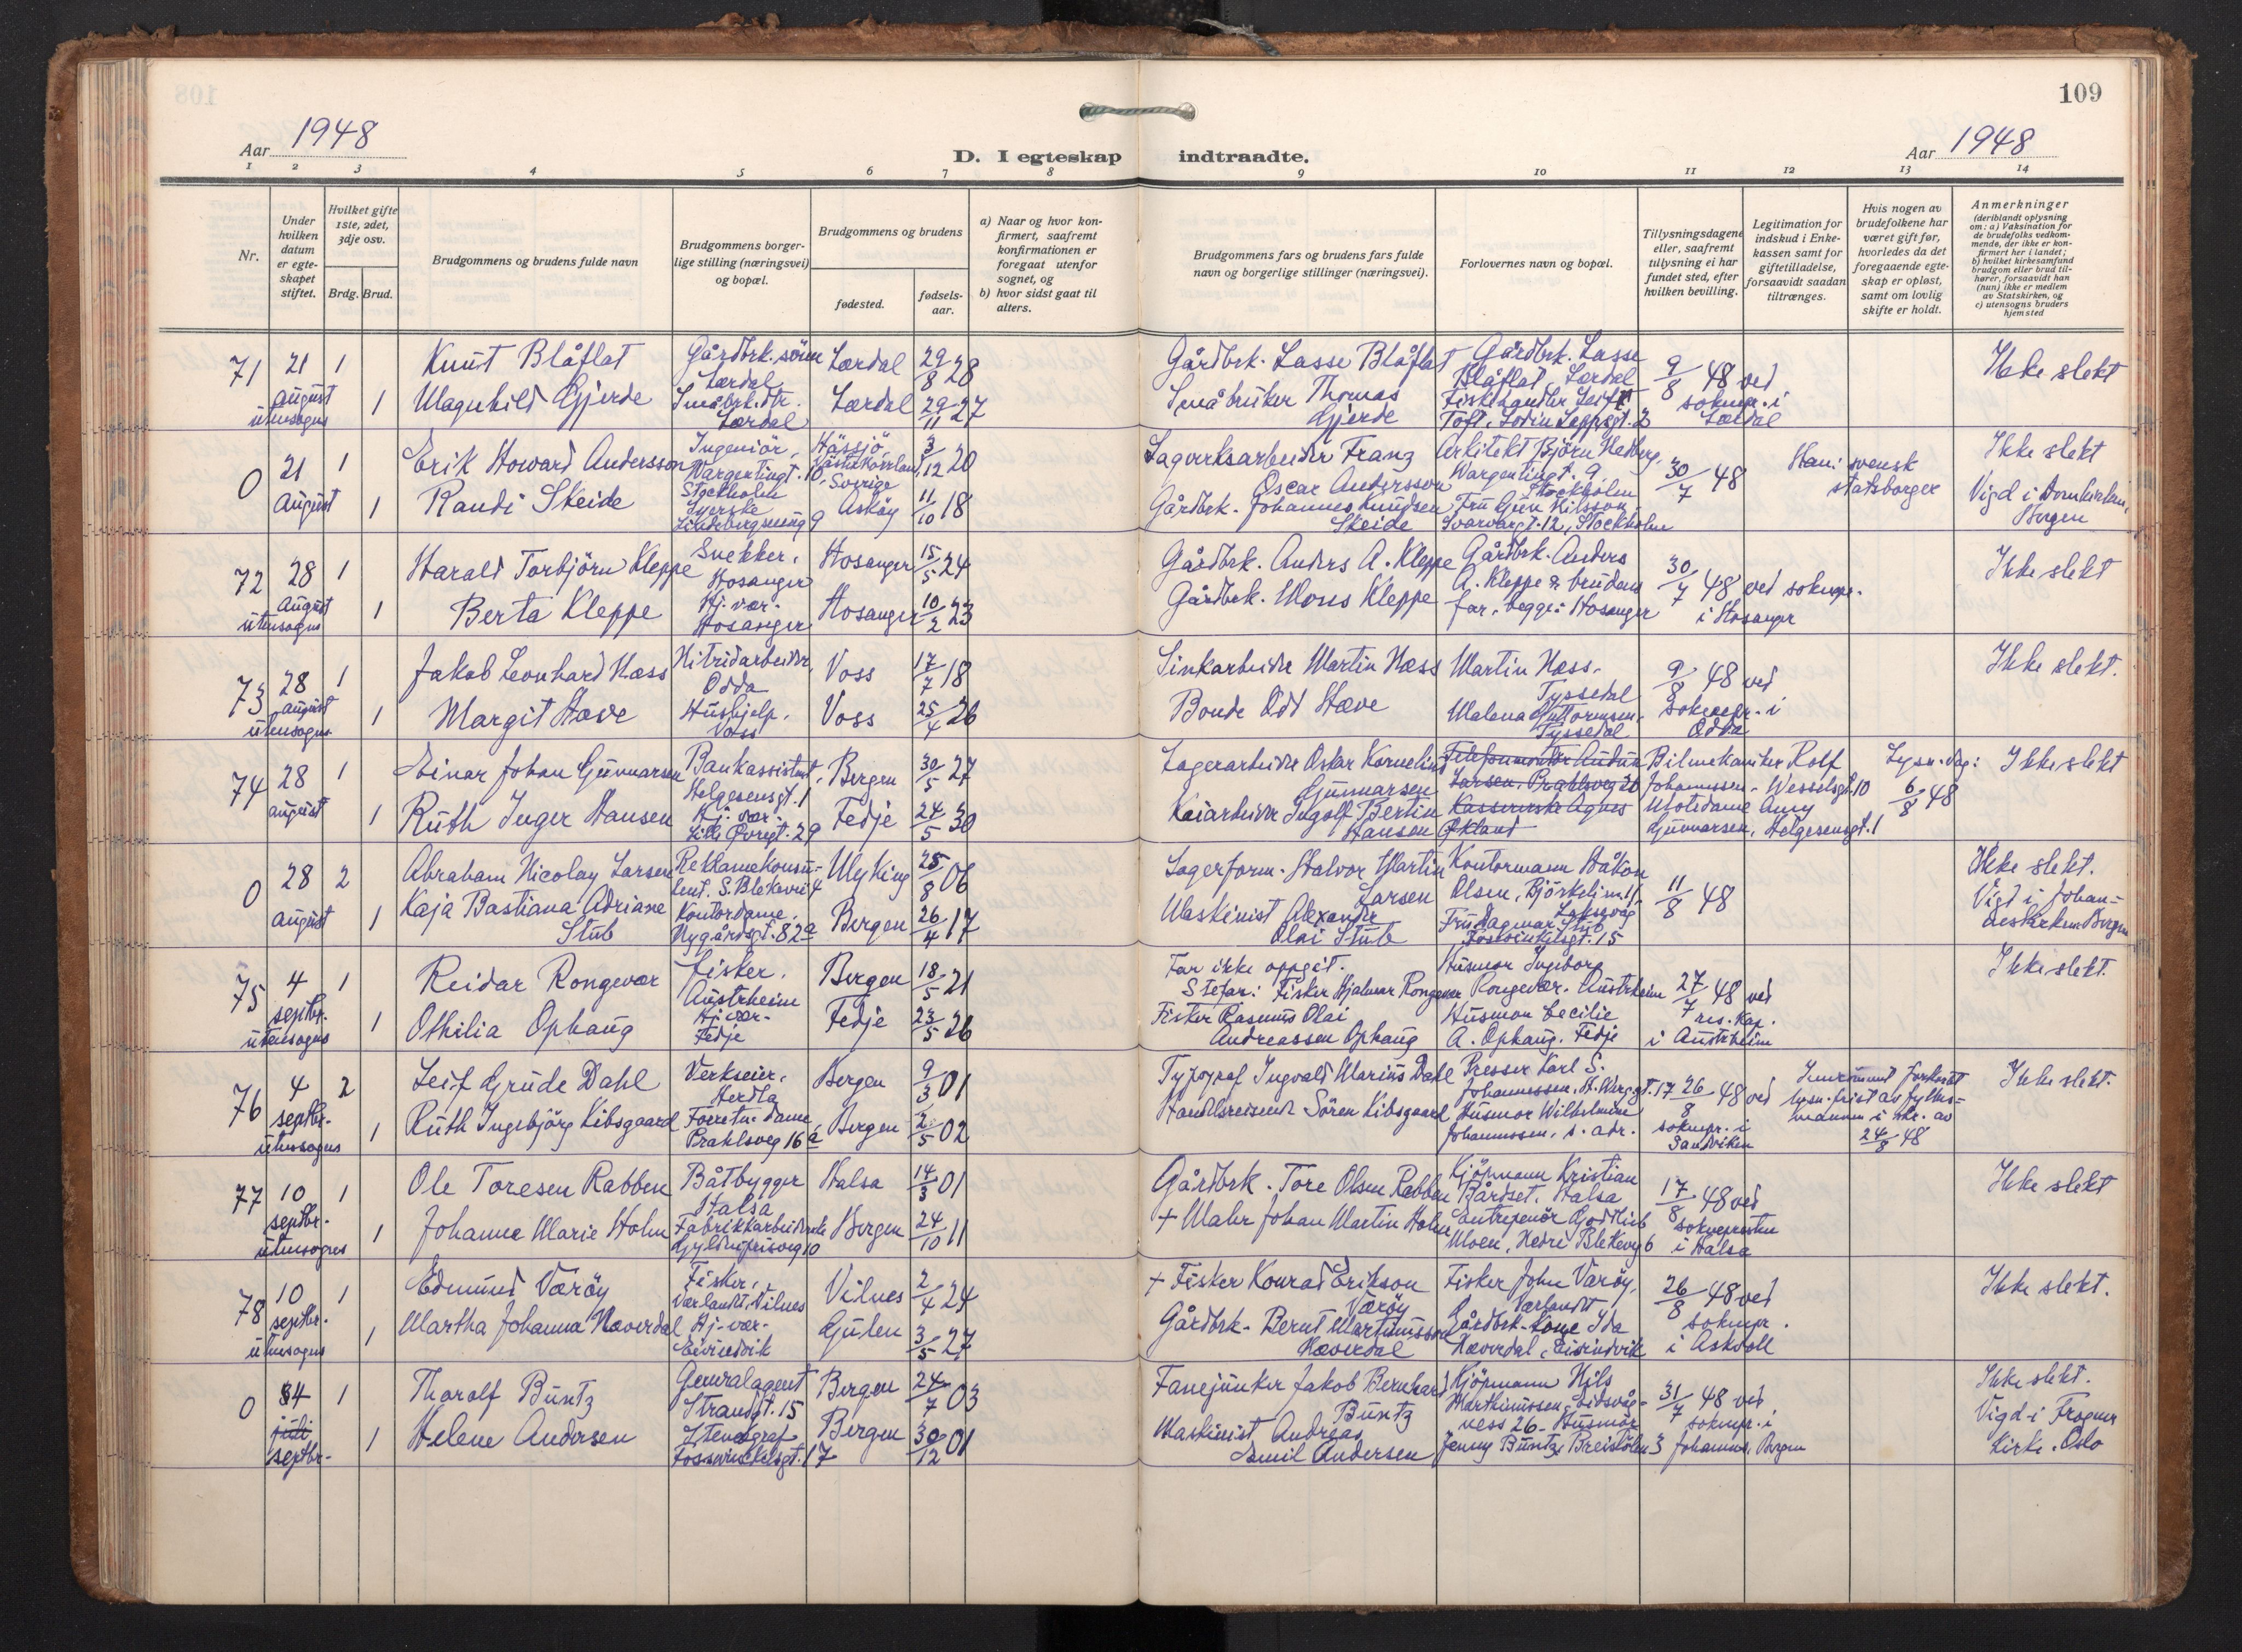 109
Aar 1948
D. I egteskap indtraadte.
Aar 1948
1 2 3 4 5 6 7 8 9 10 11 12 13 14
Nr.
Under hvilken datum er egteskapet stiftet.
Hvilket gifte 1ste, 2det, 3dje osv.
Brdg. Brud.
Brudgommens og brudens fulde navn
Brudgommens borgerlige stilling (næringsvei) og bopæl.
Brudgommens og brudens
fødested.
fødselsaar.
a) Naar og hvor konfirmert, saafremt konfirmationen er foregaat utenfor sognet, og
b) hvor sidst gaat til alters.
Brudgommens fars og brudens fars fulde navn og borgerlige stillinger (næringsvei).
Forlovernes navn og bopæl.
Tillysningsdagene eller, saafremt tillysning ei har fundet sted, efter hvilken bevilling.
Legitimation for indskud i Enkekassen samt for giftetilladelse, forsaavidt saadan tiltrænges.
Hvis nogen av brudefolkene har været gift før, hvorledes da det foregaaende egteskap er opløst, samt om lovlig skifte er holdt.
Anmerkninger
(deriblandt oplysning om: a) Vaksination for de brudefolks vedkommende, der ikke er konfirmert her i landet; b) hvilket kirkesamfund brudgom eller brud tilhører, forsaavidt han (hun) ikke er medlem av Statskirken, og c) utensogns bruders hjemsted
71 21 august utensogns 1 Knut Blåflat Gårdbrk. sönn Lærdal Lærdal 29/8 28
Gårdbrk. Lasse Blåflat Gårdbrk. Lasse Blåflat Lærdal 9/8 48 ved sokнepr. i Lærdal Ikke slekt
1 Magnhild Gjerde Småbrk. dtr. Lærdal Lærdal 29/11 27
Småbruker Thomas Gjerde Fiskehandler Leif Toft, Lodin Leppsgt. 2
0 21 August 1 Erik Howard Andersson Ingeniör, Wargentingt. 10, Stockholm Hässjö, Västernorrland, Sverige 3/12 20
Sagverksarbeider Franz Oscar Andersson Arkitekt Björn Hedberg, Wargentingt. 9, Stockholm 30/7 48 Han: svensk statsborger Ikke slekt
1 Randi Skeide Syerske Lindebergsmug 9 Asköy 11/10 18
Gårdbrk. Johannes Knudsen Skeide Fru Gun Nilsson Svarvargt. 12, Stockholm Vigd i Domkirken, Bergen
72 28 August utensogns 1 Harald Torbjörn Kleppe Snekker, Hosanger Hosanger 15/5 24
Gårdbrk. Anders A. Kleppe Gårdbrk. Anders A. Kleppe & brudens far, begge: Hosanger 30/7 48 ved soknepr. i Hosanger Ikke slekt
1 Berta Kleppe Hj. vær. Hosanger Hosanger 10/2 23
Gårdbrk. Mons Kleppe
73 28 august utensogns 1 Jakob Leonhard Næss Nitridarbeider, Odda Voss 17/7 18
Sinkarbeider Martin Næss Martin Næss, Tyssedal 9/8 48 ved soknepr. i Odda Ikke slekt.
1 Margit Hæve Hushjelp, Voss Voss 25/4 26
Bonde Odd Hæve Malena Guttormsen, Tyssedal
74 28 august 1 Einar Johan Gunnarsen Bankassistent, Helgesensgt. 1 Bergen 30/5 27
Lagerarbeider Oskar Kornelius Gunnarsen Telefonmontör Audun Larsen, Prahlsveg 20 Bilmekaniker Rolf Johannessen, Wesselsgt. 10 Lysn. dag: 6/8 48 Ikke slekt
1 Ruth Inger Hansen Hj. vær. Lille Øvregt. 29 Fedje 24/5 30
Kaiarbeider Ingolf Bertin Hansen Kassererske Agnes Økland Motedame Anny Gunnarsen, Helgesensgt. 1
0 28 august 2 Abraham Nicolay Larsen Reklamekonsulent. S. Blekevei 4 Ulyking 25/8 06
Lagerform. Halvor Martin Larsen Kontormann Håkon Olsen, Björkelien 11, Laksevåg 11/8 48 Ikke slekt.
1 Kaja Bastiana Adriane Stub Kontordame, Nygårdsgt. 82a Bergen 26/4 17
Maskinist Alexander Olai Stub Fru Dagmar Stub Fosswinckelsgt. 15 Vigd i Johanneskirken Bergen
75 4 septbr. utensogns 1 Reidar Rongevær Fisker, Austrheim Bergen 18/5 21
Far ikke oppgit. Stefar: Fisker Hjalmar Rongevær Husmor Ingeborg Rongevær. Austrheim 27/7 48 ved res. kap. i Austrheim Ikke slekt.
1 Othilia Ophaug Hj. vær. Fedje Fedje 23/5 26
Fisker Rasmus Olai Andreassen Ophaug Husmor Cecilie A. Ophaug. Fedje
76 4 septbr. utensogns 2 Leif Grude Dahl Verkseier, Herdla Bergen 9/3 01
Typograf Ingvald Marius Dahl Presser Karl S. Johannessen, H. Wergsgt. 17 26/8 48 ved soknepr. i Sandviken Innrömmet forkortet lysn. frist av fylkesmannen i skr. av 24/8 48 Ikke slekt.
1 Ruth Ingebjörg Kibsgaard Forretn. dame, Prahlsveg 16a Bergen 2/5 02
Handelsreisende Sören Kibsgaard Husmor Wilhelmine Johannessen, s. adr.
77 10 septbr. utensogns 1 Ole Toresen Rabben Båtbygger Halsa Halsa 14/3 01
Gårdbrk. Tore Olsen Rabben Kjöpmann Kristian Bårdset, Halsa 17/8 48 ved soknepresten i Halsa Ikke slekt
1 Johanne Marie Holm Fabrikkarbeiderske Gyldenprisveg 10 Bergen 24/10 11
+ Maler Johan Martin Holm Entrepenör Godtlieb Moen, Nedre Blekeveg 6
78 10 septbr. utensogns 1 EdmundVæröy Fisker, Værlandet, Vilnes Vilnes 2/4 24
+ Fisker Konrad Erikson Væröy Fisker John Væröy, Værlandet 26/8 48 ved soknepr. i Askvoll Ikke slekt.
1 Martha Johanna Næverdal Hj. vær. Eivindvik Gulen 3/5 27
Gårdbrk. Bernt Martinusson Næverdal Gårdbrk. kone Ida Næverdal, Eivindvik
0 4 juli septbr. 1 Tharalf Buntz Generalagent Strandgt. 15 Bergen 24/7 03
Fanejunker Jakob Bernhard Buntz Kjöpmann Nils Marthinussen, Eidsvågness 26. 31/7 48 ved soknepr. i Johannes, Bergen Ikke slekt.
1 Helene Andersen Stenograf Fosswinckelsgt. 17 Bergen 30/12 01
Maskinist Andreas Emil Andersen Husmor Jenny Buntz, Breistölen 3 Vigd i Frogner kirke. Oslo